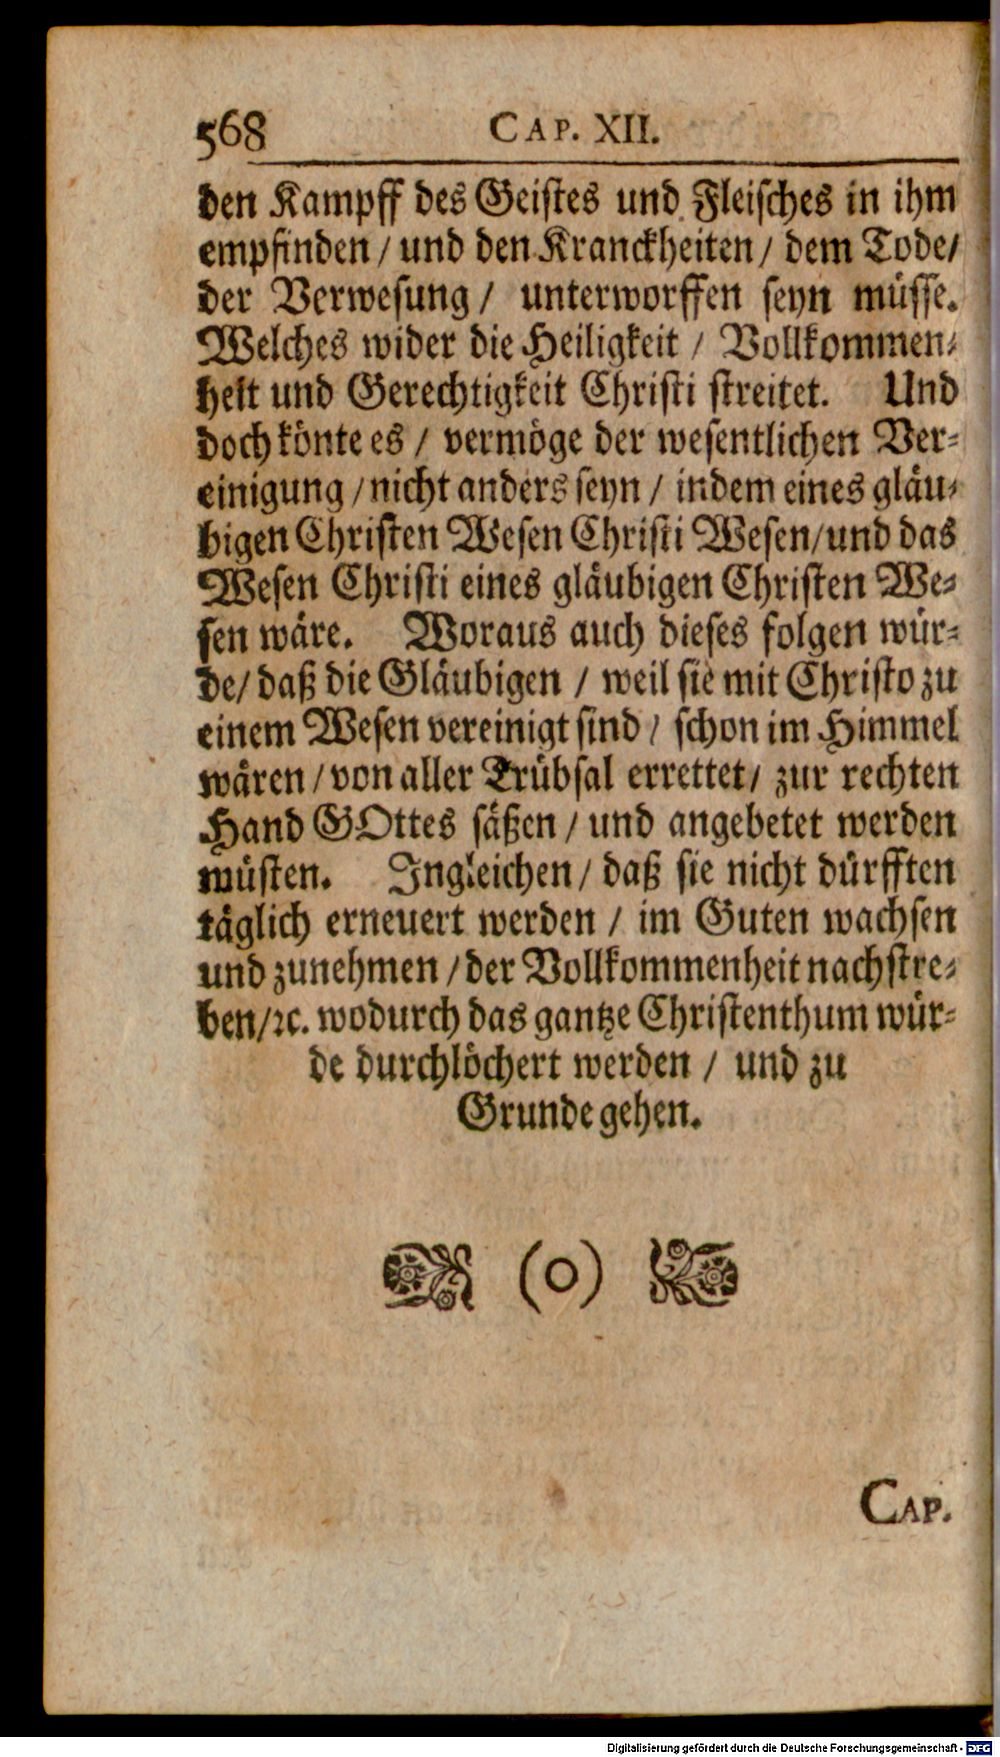 568 CAP. XII.
den Kampff des Geistes und Fleisches in ihm
empfinden / und den Kranckheiten / dem Tode/
der Verwesung / unterworffen seyn müsse.
Welches wider die Heiligkeit / Vollkommen-
heit und Gerechtigkeit Christi streitet. Und
doch könte es / vermöge der wesentlichen Ver-
einigung / nicht anders seyn / indem eines gläu-
bigen Christen Wesen Christi Wesen/und das
Wesen Christi eines gläubigen Christen We-
sen wäre. Woraus auch dieses folgen wür-
de/ daß die Gläubigen / weil sie mit Christo zu
einem Wesen vereinigt sind / schon im Himmel
wären / von aller Trübsal errettet/ zur rechten
Hand GOttes säßen / und angebetet werden
müsten. Ingleichen / daß sie nicht dürfften
täglich erneuert werden / im Guten wachsen
und zunehmen / der Vollkommenheit nachstre-
ben/ꝛc. wodurch das gantze Christenthum wür-
de durchlöchert werden / und zu
Grunde gehen.
(o)
CAP.
Digitalisierung gefördert durch die Deutsche Forschungsgemeinschaft - DFG